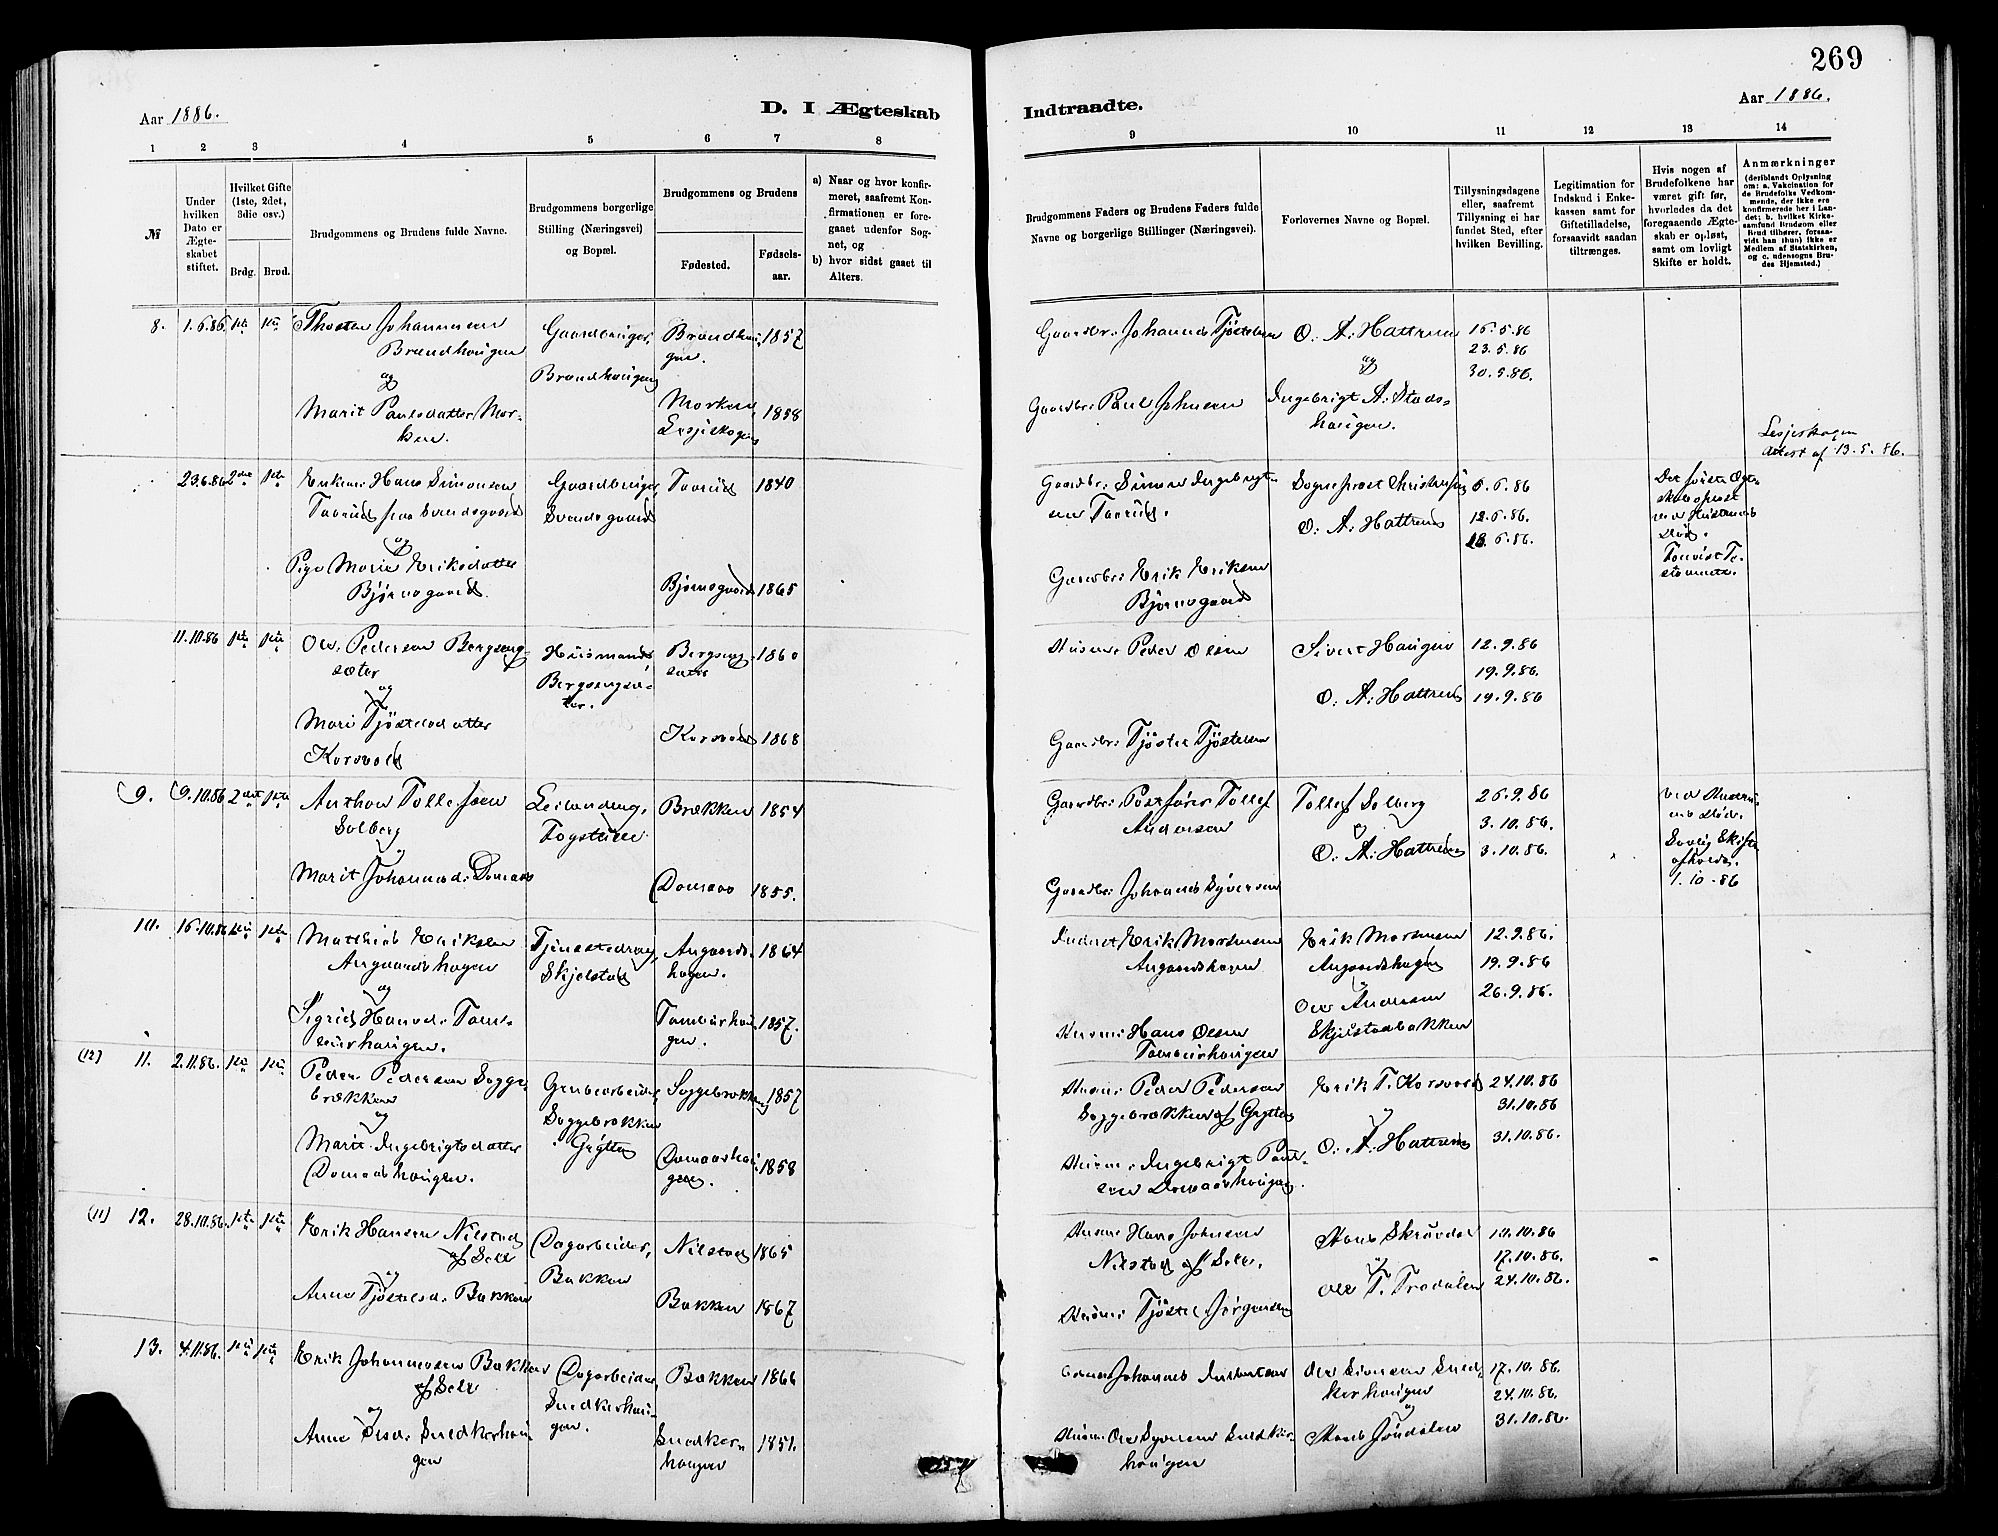 269
Aar 1886.
D. I Ægteskab
Indtraadte.
Aar 1886.
1 2 3 4 5 6 7 8
9 10 11 12 13 14
№
Under hvilken Dato er Ægteskabet stiftet.
Hvilket Gifte (1ste, 2det, 3die osv.)
Brdg. Brud.
Brudgommens og Brudens fulde Navne.
Brudgommens borgerlige Stilling (Næringsvei) og Bopæl.
Brudgommens og Brudens
Fødested.
Fødselsaar.
a) Naar og hvor konfirmeret, saafremt Konfirmationen er foregaaet udenfor Sognet, og
b) hvor sidst gaaet til Alters.
Brudgommens Faders og Brudens Faders fulde Navne og borgerlige Stillinger (Næringsvei).
Forlovernes Navne og Bopæl.
Tillysningsdagene eller, saafremt Tillysning ei har fundet Sted, efter hvilken Bevilling.
Legitimation for Indskud i Enkekassen samt for Giftetilladelse, forsaavidt saadan tiltrænges.
Hvis nogen af Brudefolkene har været gift før, hvorledes da det foregaaende Ægteskab er opløst, samt om lovligt Skifte er holdt.
Anmærkninger (deriblandt Oplysning om: a. Vakcination for de Brudefolks Vedkommende, der ikke ere konfirmerede her i Landet; b. hvilket Kirkesamfund Brudgom eller Brud tilhører, forsaavidt han (hun) ikke er Medlem af Statskirken, og c. udensogns Brudes Hjemsted.)
8. 1.6.86. 1ste 1ste
Thosten Johannesen
Brændhaugen
og
Marit Paulsdatter Morken.
Gaardbruger,
Brændhaugen
Brændhaugen. 1857
Morken
Lesjeskogen 1858
Gaardbr: Johannes Tjøstelsen
Gaardbr: Paul Johnsen
O. A. Hattrem
og
Ingebrigt A. Stadshaugen.
16.5.86
23.5.86
30.5.86.
Lesjeskogen
Attest af 13.5.86.
23.6.86 2det 1ste
Enkem: Hans Simonsen
og
Pige Marie Eriksdatter
Bjørnsgaard.
Gaardbruger,
Svendsgaard
1840
Bjørnsgaard 1865
Gaardbr: Simen Ingebrigtsen
Gaardbr: Erik Eriksen
Bjørnsgaard
Sogneprest
O. A. Hattrem
6.6.86
12.6.86.
18.6.86.
11.10.86 1ste 1ste
Ole Pedersen Bergsengsæter
og
Mari Tjøstelsdatter
Korsvold
Husmand
Bergsengsæter.
Bergsengsæter 1860
Korsvold 1868
Husm: Peder Olsen
Gaardbr: Tjøstel Tjøstelsen
Sivert Haugen
O. A. Hattrem
12.9.86
19.9.86.
19.9.86
(9. (9.10.86 2det 1ste
Anthon Tollefsen
Solberg
og
Marit Johannesd. Domaas
Leilending,
Fogstuen
Brækken 1854
Domaas 1855.
Gaardbr: Tollef
Andersen
Gaardbr: Johannes Syversen
Tollef Solberg
og
O. A. Hattrem
26.9.86
3.10.86.
3.10.86.
ved Hustruens Død.
Lovlig Skifte
afholdt.
1.10-86
10. 16.10.86 1ste 1ste
Mathias Eriksen
Angaardshagen
og
Sigrid Hansd.
Tjenestedreng,
Skjelstad
Angaardshagen. 1864
1857.
Erik Mortensen
Angaardshagen
Husm: Hans Olsen
Erik Mortensen
Angaardshagen
Ole Andersen
Skjelstadbakken
12.9.86.
19.9.86
26.9.86.
(12) 11. 2.11.86. 1ste 1ste
Peder Pedersen Soggebrækken
og
Marit Ingebrigtsdatter
Domaashaugen.
Grubearbeider,
Soggebrækken
i Grytten
Soggebrækken 1857
Domaashaugen. 1858
Husm: Peder Pedersen
Soggebrækken af Grytten
Husm: Ingebrigt Paulsen Domaashaugen
Erik T. Korsvold
og
O. A. Hattrem
24.10.86
31.10.86
31.10.86.
(11) 12. 28.10.86. 1ste 1ste
Erik Hansen Nilstad
af Sell
og
Anne Tjøstelsd. Bakken
Dagarbeider,
Bakken
Nilstad 1865
Bakken 1867
Husm: Hans Johnsen
Nilstad af Sell.
Husm: Tjøstel Jørgensen
Hans Skrøvdal
og
Ole T. Trodalen
10.10.86
17.10.86.
24.10.86.
13. 4.11.86. 1ste 1ste
Erik Johannesen Bakken
af Sell
og
Anne Olsd. Snedkerhaugen
Dagarbeider,
Snedkerhaugen.
Bakken 1866
Snedkerhaugen 1851.
Johannes
Husm: Ole Syversen Snedkerhaugen
Ole Simensen Snedkerhaugen
og
Hans Jøndalen
17.10.86
24.10.86.
31.10.86.